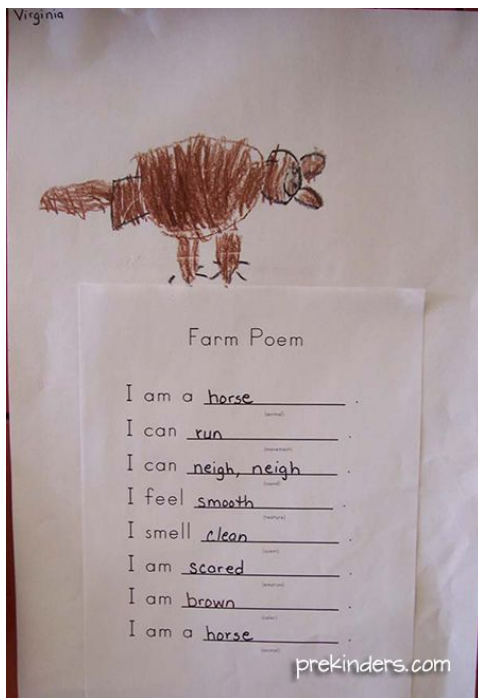 Virginia
Farm Poem
I am a horse.
(animal)
I can run.
(movement)
I can neigh, neigh.
(sound)
I feel smooth.
(texture)
I smell clean.
(scent)
I am scared.
(emotion)
I am brown.
(color)
I am a horse.
(animal)
prekinders.com